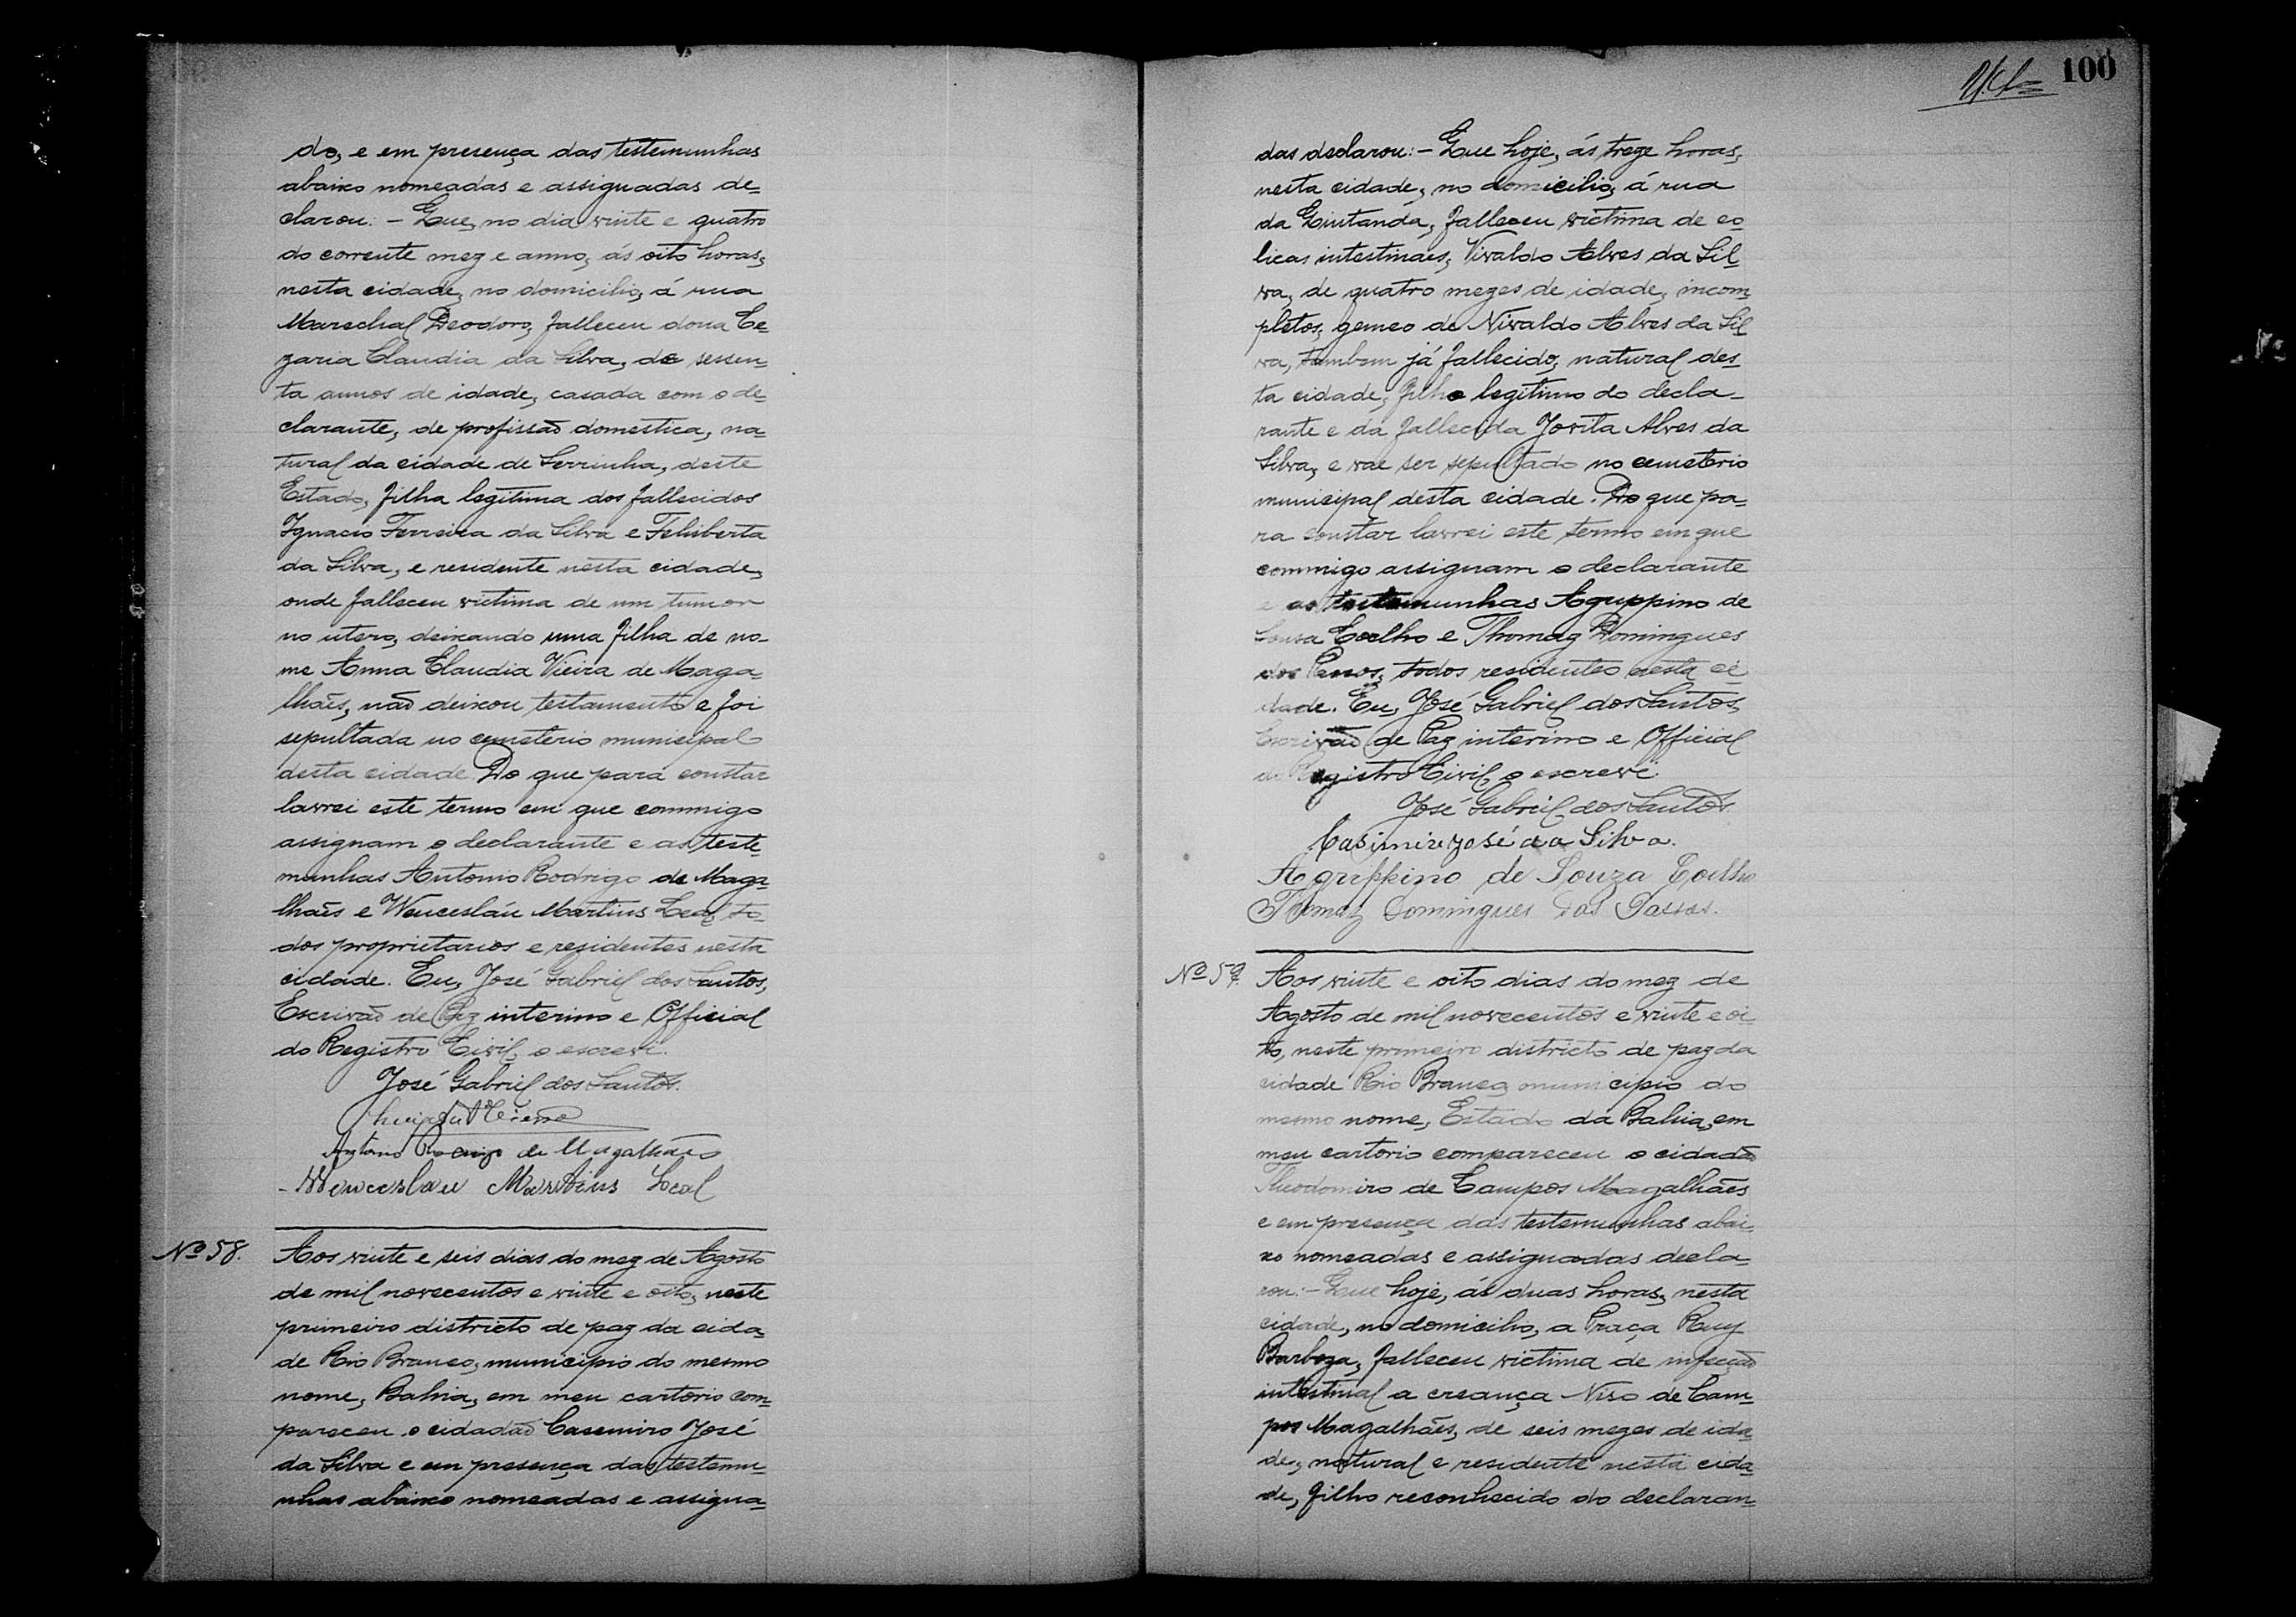 do, e em presença das testemunhas
abaixo nomeadas e assignadas de=
clarou: - Que, no dia vinte e quatro
do corrente mez e anno, ás oito horas,
nesta cidade, no domicilio, á rua
Marechal Deodoro, falleceu dona Ce=
zaria Claudia da Silva, de sessen=
ta annos de idade, casada com o de=
clarante, de profissão domestica, na=
tural da cidade de Serrinha, deste
Estado, filha legitima dos fallecidos
Ignacio Ferreira da Silva e Felisberta
da Silva, e residente nesta cidade,
onde falleceu victima de um tumor
no utero, deixando uma filha de no-
me Anna Claudia Vieira de Maga=
lhães, não deixou testamento e foi
sepultada no cemeterio municipal
desta cidade Do que para constar
lavrei este termo em que commigo
assignam o declarante e as teste=
munhas Antonio Rodrigo de Maga=
lhães e Wencesláu Martins Leal, to=
dos proprietarios e residentes nesta
cidade. Eu, José Gabriel dos Santos,
Escrivão de Paz interino e Official
do Registro Civil, o escrevi.
José Gabriel dos Santos.
Antonio Rodrigo de Magalhães
Wenceslau Martins Leal
Nº 58. Aos vinte e seis dias do mez de Agosto
de mil novecentos e vinte e oito, neste
primeiro districto de paz da cida=
de Rio Branco, municipio do mesmo
nome, Bahia, em meu cartorio com=
pareceu o cidadão Casemiro José
da Silva e em presença das testemu=
nhas abaixo nomeadas e assigna=
100
das declarou: - Que hoje, ás treze horas,
nesta cidade, no domicilio, á rua
da Quitanda, falleceu victima de co=
licas intestinaes, Vivaldo Alves da Sil=
va, de quatro mezes de idade, incom=
pletos, gemeo de Nivaldo Alves da Sil=
va, tambem já fallecido, natural des=
ta cidade, filho legitimo do decla-
rante e da fallecida Jovita Alves da
Silva, e vae ser sepultado no cemeterio
municipal desta cidade. Do que pa=
ra constar lavrei este termo em que
commigo assignam o declarante
e as testemunhas Agrippino de
Sousa Coelho e Thomaz Domingues
dos Passos, todos residentes nesta ci=
dade. Eu, José Gabriel dos Santos,
Escrivão de Paz interino e Official
do Registro Civil, o escrevi.
José Gabriel dos Santos.
Casimiro José da Silva.
Agrippino de Souza Coelho
Thomaz Domingues dos Passos.
Nº 59. Aos vinte e oito dias do mez de
Agosto de mil novecentos e vinte e oi=
to, neste primeiro districto de paz da
cidade Rio Branco, municipio do
mesmo nome, Estado da Bahia, em
meu cartorio compareceu o cidadão
Theodomiro de Campos Magalhães
e em presença das testemunhas abai=
xo nomeadas e assignadas decla=
rou: - Que hoje, ás duas horas, nesta
cidade, no domicilio, a Praça Ruy
Barboza, falleceu victima de infecção
intestinal a creança Niso de Cam=
pos Magalhães, de seis mezes de ida=
de, natural e residente nesta cida=
de, filho reconhecido do declaran=